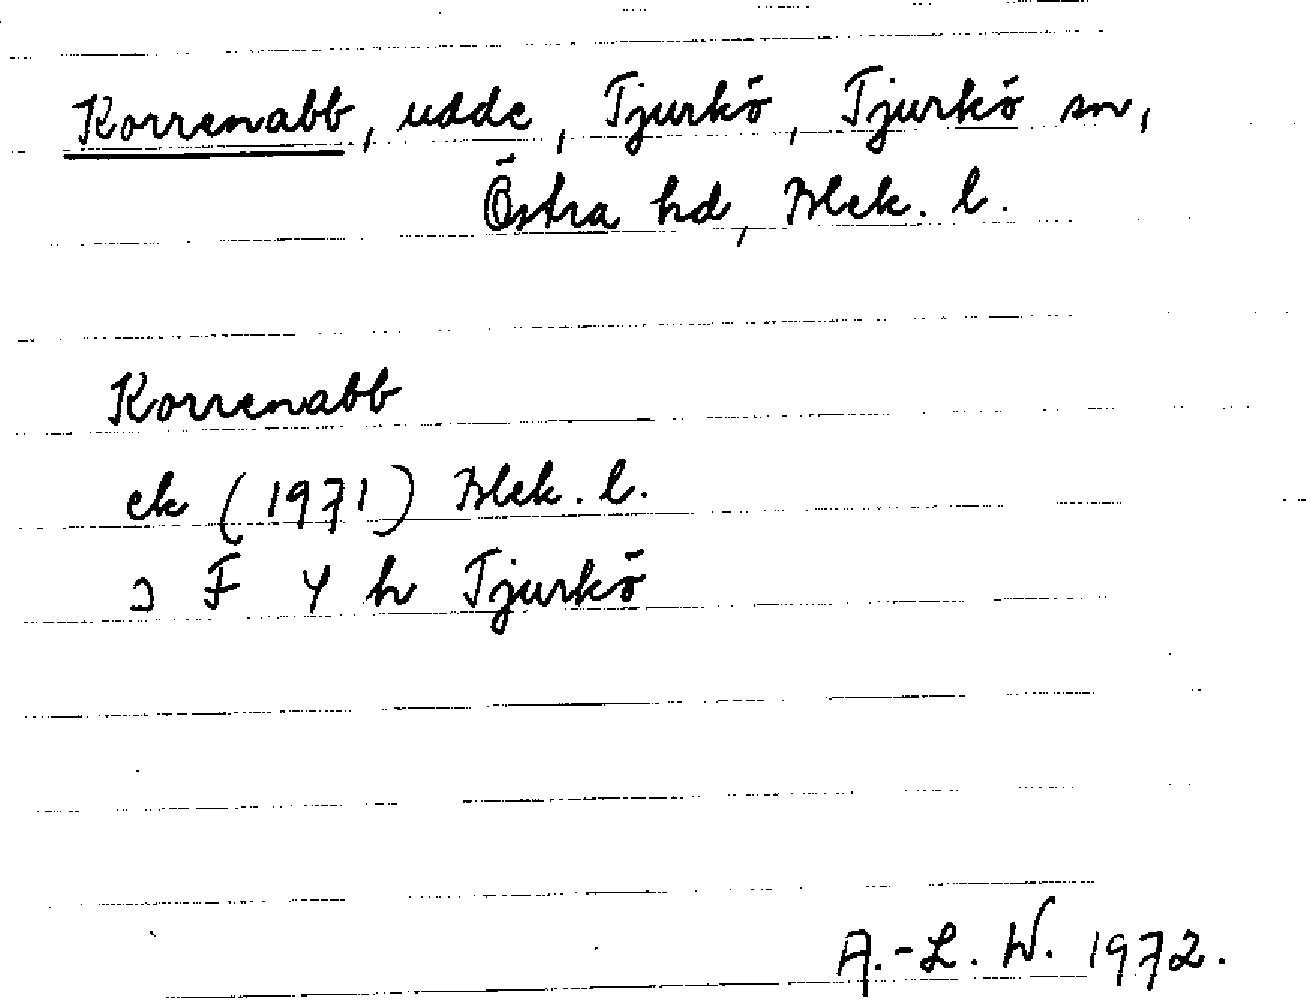 Korrenabb, udde, Tjurkö, Tjurkö sn,
Östra hd, Blek. l.
Korrenabb
ek (1971) Blek. l.
3 F 4 h Tjurkö
A.-L. W. 1972.